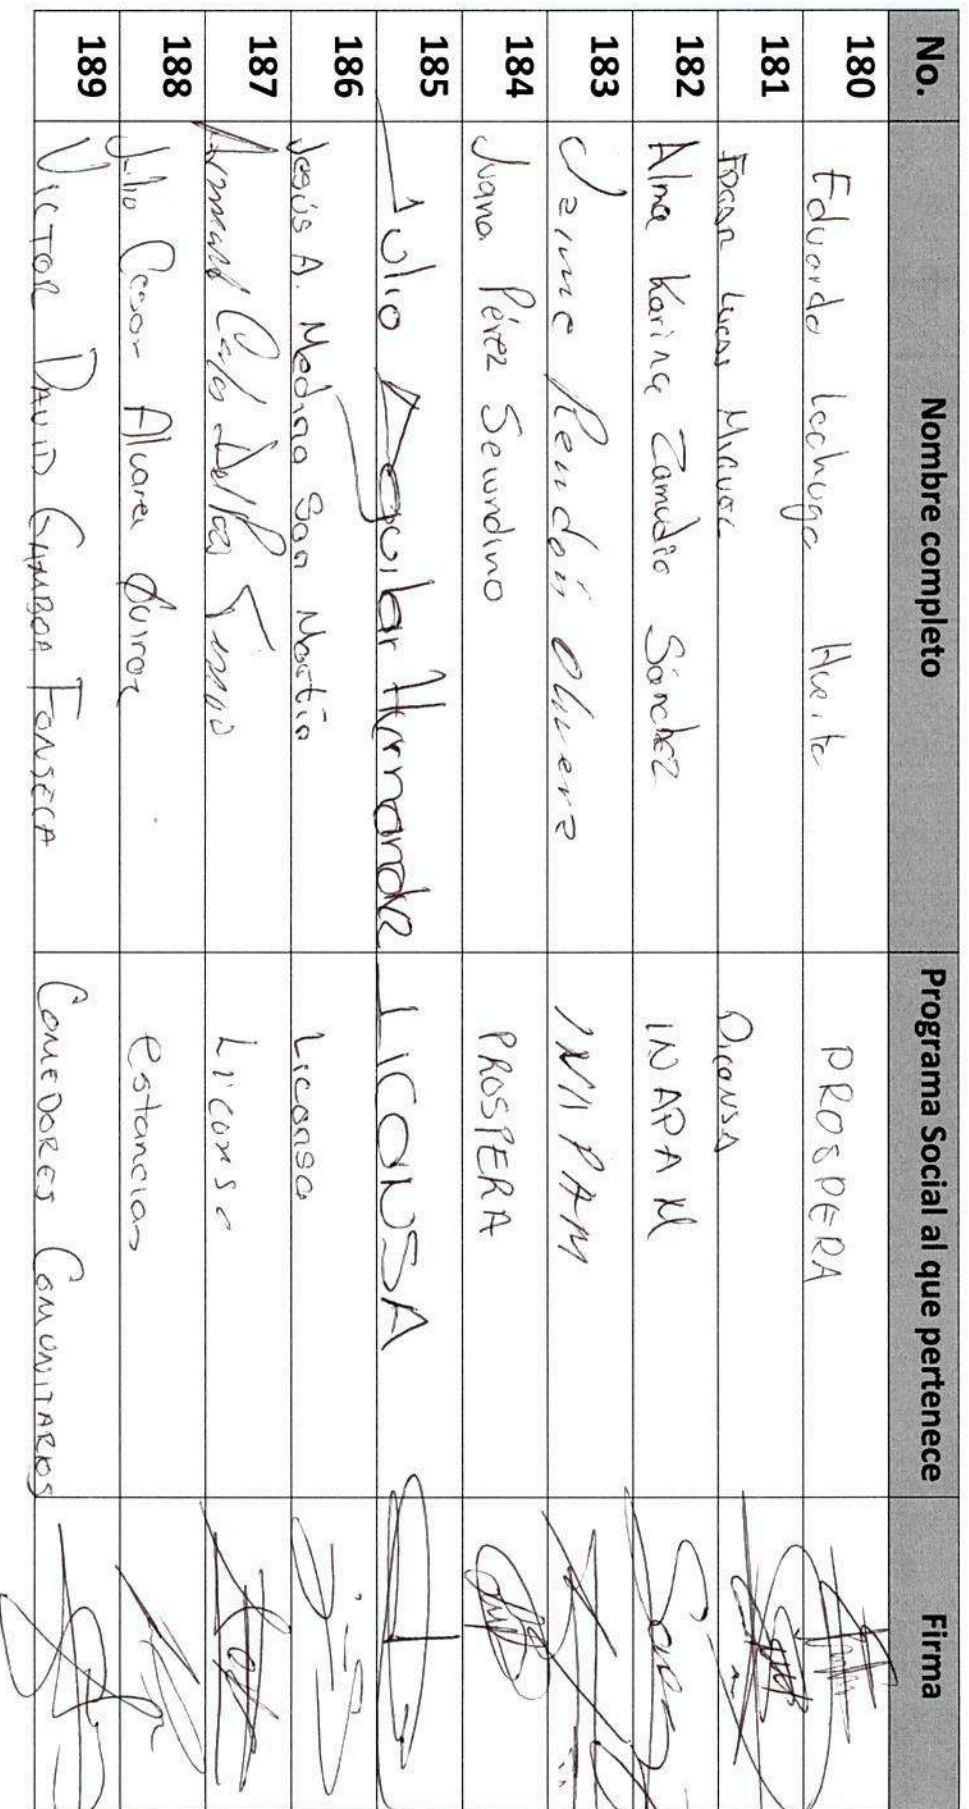 No. Nombre completo Programa Social al que pertenece Firma
180 Eduardo Lechuga Huerta PROSPERA
181 Lucas DICONSA
182 Alma Karina Zamudio Sánchez INAPAM
183 Rendón Olvera INAPAM
184 Juana Pérez Secundino PROSPERA
185 Julio Aguilar Hernandez LICONSA
186 Jesús A. Medina San Martín Liconsa
187 Liconsa
188 Julio Cesar Alvarez estancias
189 VICTOR DAVID GAMBOA FONSECA COMEDORES COMUNITARIOS